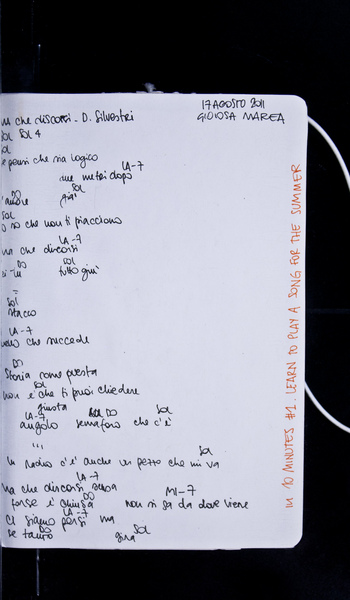 17 AGOSTO 2011
GIOIOSA MAREA
che discorsi - D. Silvestri
SOL SOL 4
SOL
e pensi che sia logico
LA-7
metri dopo
DO SOL
giri
SOL
o so che non ti piacciono
LA-7
ma che discorsi
DO SOL
tutto giri
=
SOL
stacco
LA-7
che succede
DO
storia come questa
SOL
non è che ti puoi chiedere
giusta
LA-7 DO SOL
angolo semaforo che c'è
"'
SOL
In radio c'è anche un pezzo che mi va
LA-7
ma che discorsi
DO MI-7
forse è chiusa non si sa da dove viene
LA-7
ci siamo persi ma
DO SOL
se tanto gira
IN 10 MINUTES #1. LEARN TO PLAY A SONG FOR THE SUMMER